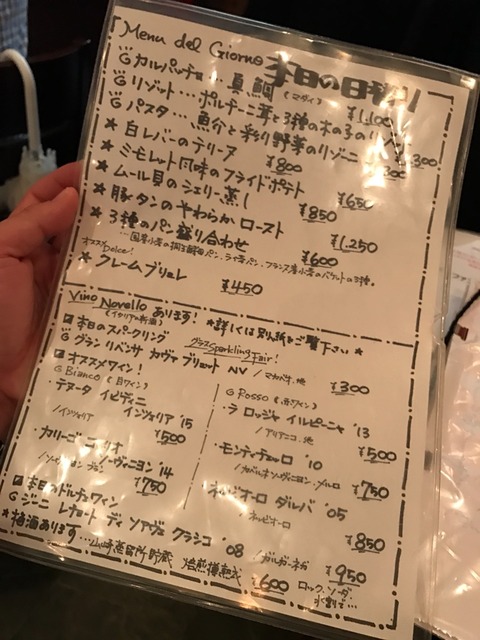 Menu del Giorno 本日の日モリ
G カルパッチョ… 真鯛(マダイ) ¥1,100
G リゾット… ポルチーニ茸と3種の木の子のリゾ 300
G パスタ… 魚介と彩り野菜のリゾーニ 300
★ 白レバーのテリーヌ ¥800
★ ミモレット風味のフライドポテト ¥650
★ ムール貝のシェリー蒸し ¥850
★ 豚タンのやわらかロースト ¥1,250
★ 3種のパン盛り合わせ ¥600
…国産小麦の 酵母パン・ライ麦パン・フランス産小麦のバゲットの3種。
オススメDolce!
★ クレームブリュレ ¥450
Vino Novello あります! ★詳しくは別紙をご覧下さい★
(イタリアの新酒)
本日のスパークリング グラスSparkling Fair!
G グラン リベンサ カヴァ ブリュット NV /マカベオ.他 ¥300
オススメワイン!
G Bianco(白ワイン)
・テヌータ イビディニ
インツォリア '15
/インツォリア ¥500
・カリーゴ
ソーヴィニヨン '14
¥750
G Rosso(赤ワイン)
・ラ ロッジャ イルピーニャ '13
/アリアニコ.他 ¥500
・モンティチェッロ '10
/カベルネソーヴィニヨン・メルロ ¥750
・ネルビオーロ ダルバ '05
/ネルビオーロ ¥850
本日のドルチェワイン
G ジーニ レチョート ディ ソアヴェ クラシコ '08 /ガルガーネガ ¥950
★梅酒あります… 山崎蒸留所貯蔵 焙煎樽熟成 ¥600 ロック、ソーダ、
水割で…